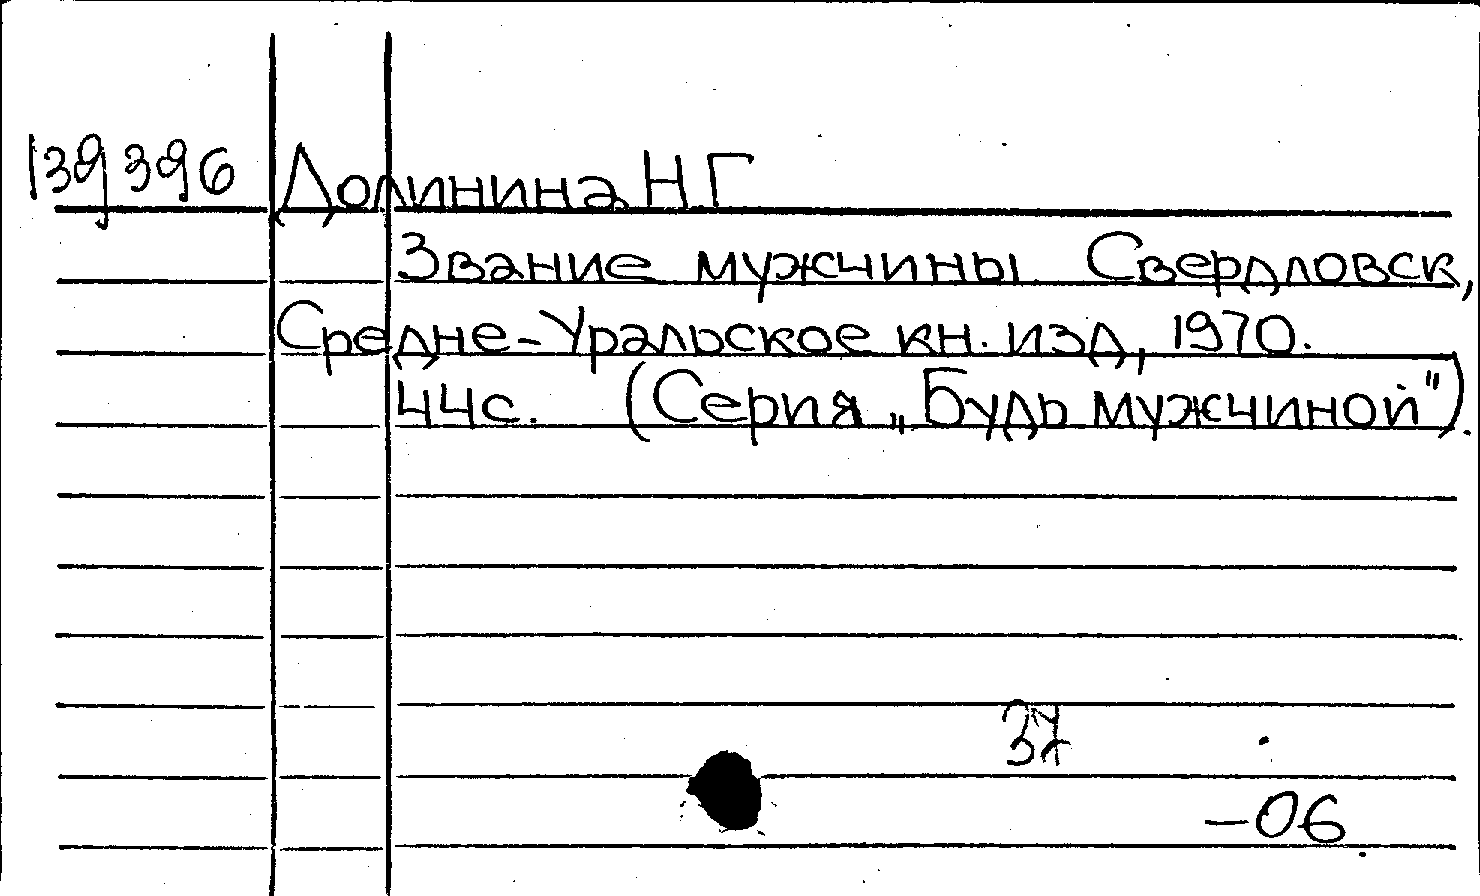 139396 Долинина Н Г
Звание мужчины. Свердловск,
Средне-Уральское кн. изд, 1970.
44с. (Серия „Будь мужчиной").
37
-06